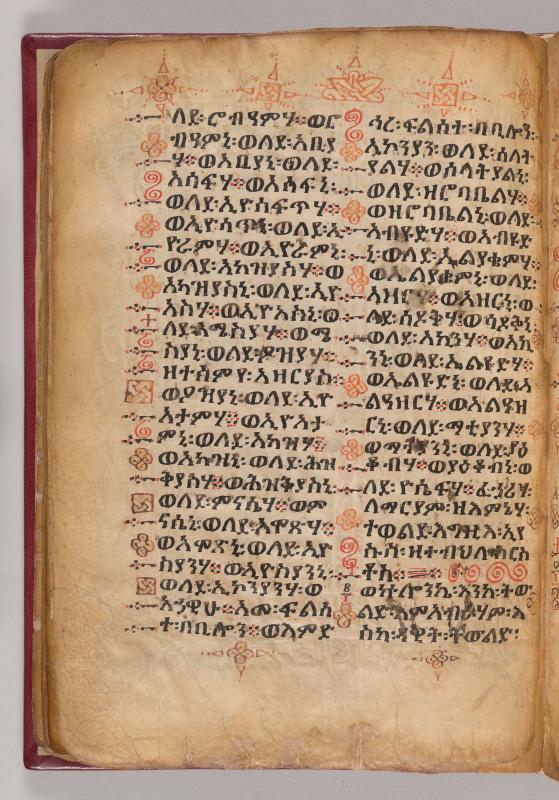 ለደ፡ ሮብዓምሃ። ወሮ
ብዓምኒ፡ ወለደ፡ አቢያ
ሃ። ወአቢያኒ፡ ወለደ፡
አሳፍሃ። ወአሳፍኒ፡
ወለደ፡ ኢዮሳፍጥሃ።
ወኢዮሳጥኒ፡ ወለደ፡ ኢ
ዮራምሃ። ወኢዮራምኒ፡
ወለደ፡ አካዝያስሃ። ወ
አካዝያስኒ፡ ወለደ፡ ኢዮ
አስሃ። ወኢዮአስኒ፡ ወ
ለደ፡ አሜስያሃ። ወሜ
ስያኒ፡ ወለደ፡ ዖዝያሃ።
ዘተሰምየ፡ አዛርያስ።
ወዖዝያኒ፡ ወለደ፡ ኢዮ
አታምሃ። ወኢዮአታ
ምኒ፡ ወለደ፡ አካዝሃ።
ወአካዝኒ፡ ወለደ፡ ሕዝ
ቅያስሃ። ወሕዝቅያስኒ፡
ወለደ፡ ምናሴሃ። ወም
ናሴኒ፡ ወለደ፡ አሞጽሃ።
ወአሞጽኒ፡ ወለደ፡ ኢዮ
ስያንሃ። ወኢዮስያንኒ፡
ወለደ፡ ኢኮንያንሃ፡ ወ
አኃዊሁ። አመ፡ ፍልሰ
ተ፡ ባቢሎን። ወእምድ
ኅረ፡ ፍልሰተ፡ ባቢሎን፡
ኢኮንያን፡ ወለደ፡ ሰላት
ያልሃ፡ ወሰላትያልኒ፡
ወለደ፡ ዘሮባቤልሃ።
ወዘሮባቤልኒ፡ ወለደ፡
አብዩድሃ፡ ወአብዩድ
ኒ፡ ወለደ፡ ኤልያቄምሃ።
ወኤልያቄምኒ፡ ወለደ፡
አዛርሃ። ወአዛርኒ፡ ወ
ለደ፡ ሳዶቅሃ። ወሳዶቅኒ፡
ወለደ፡ አኪንሃ። ወአኪ
ንኒ፡ ወለደ፡ ኤልዩድሃ።
ወኤልዩድኒ፡ ወለደ፡ አ
ልዓዛርሃ። ወአልዓዛ
ርኒ፡ ወለደ፡ ማቲያንሃ።
ወማትያንኒ፡ ወለደ፡ ያዕ
ቆብሃ። ወያዕቆብኒ፡ ወ
ለደ፡ ዮሴፍሃ። ፈኃሪሃ፡
ለማርያም፡ ዘእምኔሃ፡
ተወልደ፡ እግዚእ፡ ኢየ
ሱስ፡ ዘተብህለ፡ ክርስ
ቶስ።
፪ ወኵሎንኬ፡ እንከ፡ ትወ
ልድ፡ እምአብራሃም፡ እ
ስከ፡ ዳዊት፡ ትወልድ፡